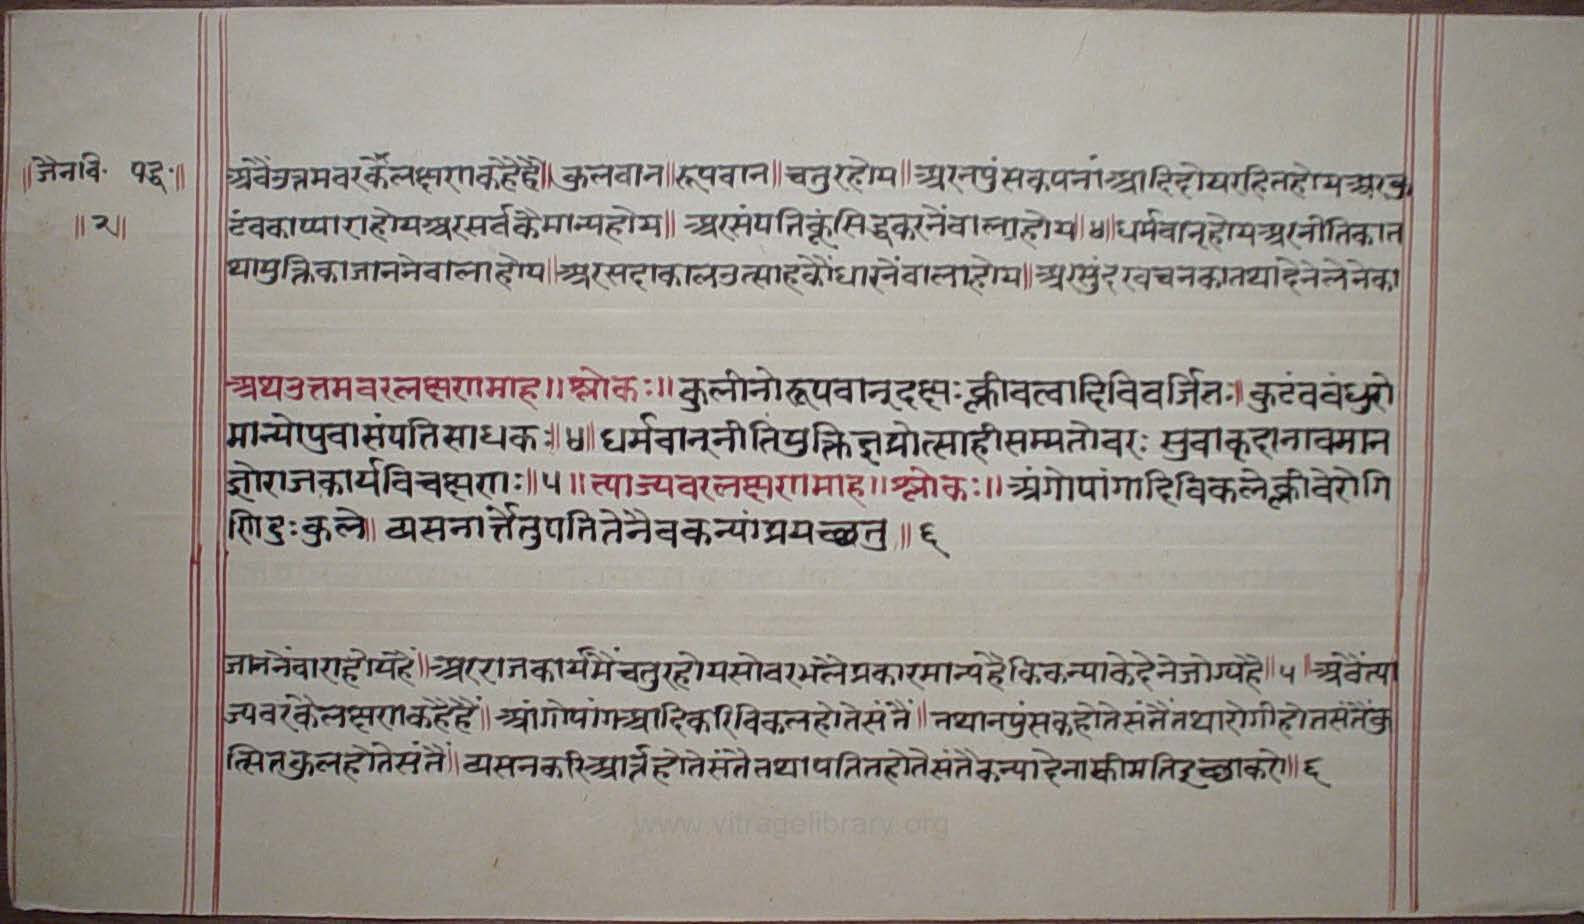 ॥जैनवि॰ पद्द॰॥
॥२॥
अबैंउत्तमवरकैंलक्षणकहैहैं॥ कुलवान॥रूपवान॥चतुरहोय॥अरनपुंसकपनांआदिदोयरहितहोयअरकु
टंबकाप्याराहोयअरसर्वकैमान्यहोय॥ अरसंपत्तिकूंसिद्धकरनेंवालाहोय॥४॥धर्मवान्होयअरनीतिकात
थायुक्तिकाजाननेवालाहोय॥अरसदाकालउत्साहकौंधारनेंवालाहोय॥अरसुंदरवचनकातथादेनेलेनेका
अथउत्तमवरलक्षणमाह॥श्लोकः॥कुलीनोरूपवान्दक्षःक्लीवत्वादिविवर्जितः॥कुटंबबंधुरो
मान्योयुवासंपत्तिसाधकः॥४॥धर्मवान्नीतियुक्तिज्ञप्रोत्साहीसम्मतोवरः सुवाक्दानावमान
ज्ञोराजकार्यविचक्षणाः॥५॥त्याज्यवरलक्षणमाह॥श्लोकः॥अंगोपांगादिविकलेक्लीवेरोगि
णिदुःकुले॥ व्यसनार्त्तेतुपतितेनैवकन्यांप्रयच्छतु॥६
जाननेंवाराहोयहैं॥अरराजकार्यमैंचतुरहोयसोवरभलैप्रकारमान्यहैकिकन्याकेदेनेजोग्यहै॥५॥अबैंत्या
ज्यवरकैलक्षणकहैहैं॥आंगोपांगआदिकरिविकलहोतेसंतैं॥तथानपुंसकहोतेसंतैंतथारोगीहोतसंतैंकु
त्सितकुलहोतेसंतैं॥व्यसनकरिआर्त्तहोतेसंतैतथापतितहोतेसंतैकन्यादेनाकीमतिइच्छाकरो॥६
www.vitragelibrary.org